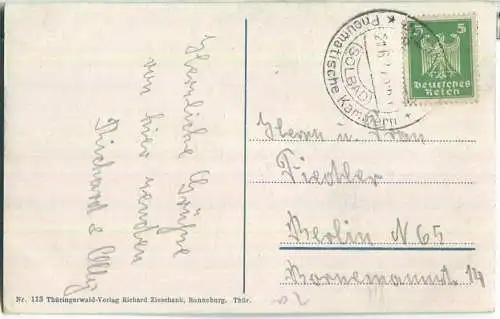 Herzliche Grüße
von hier senden
Richard & Olly
* Pneumatische Kammern *
(SOLBAD)
5 5
Deutsches
Reich
Herrn u. Frau
Fiedler
Berlin N 65
Bornemannst. 14
Nr. 113 Thüringerwald-Verlag Richard Zieschank, Ronneburg. Thür.